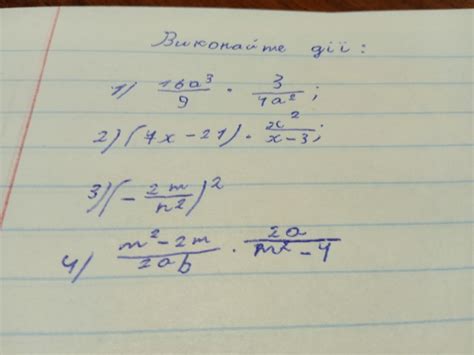 Виконайте дії:
1) 16a³/9 · 3/4a²;
2) (7x - 21) · x²/x-3;
3) (- 2m/n²)²
4) m² - 2m/2ab · 2a/m² - 4